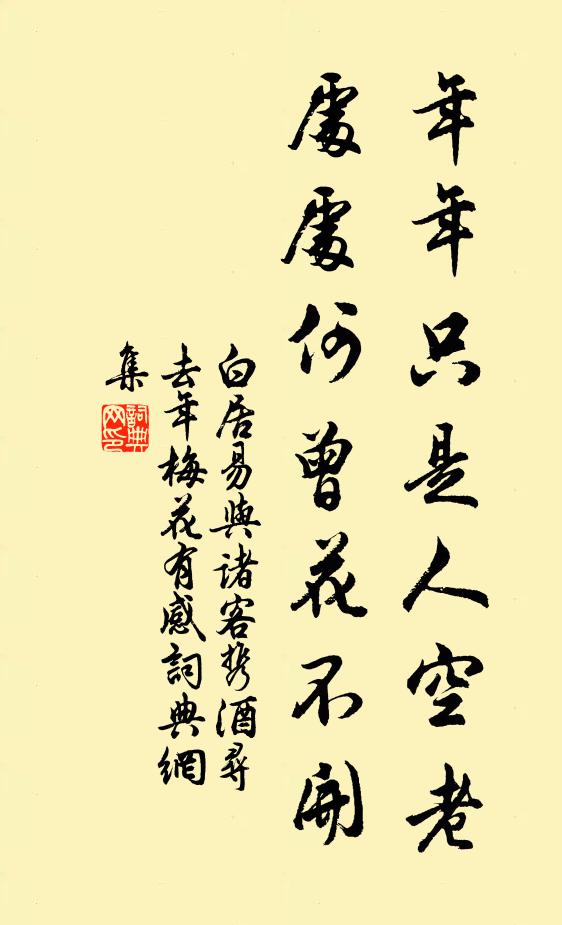 年年只是人空老
處處何曾花不開
白居易與諸客携酒尋
去年梅花有感詞典網
集
詞典
网印